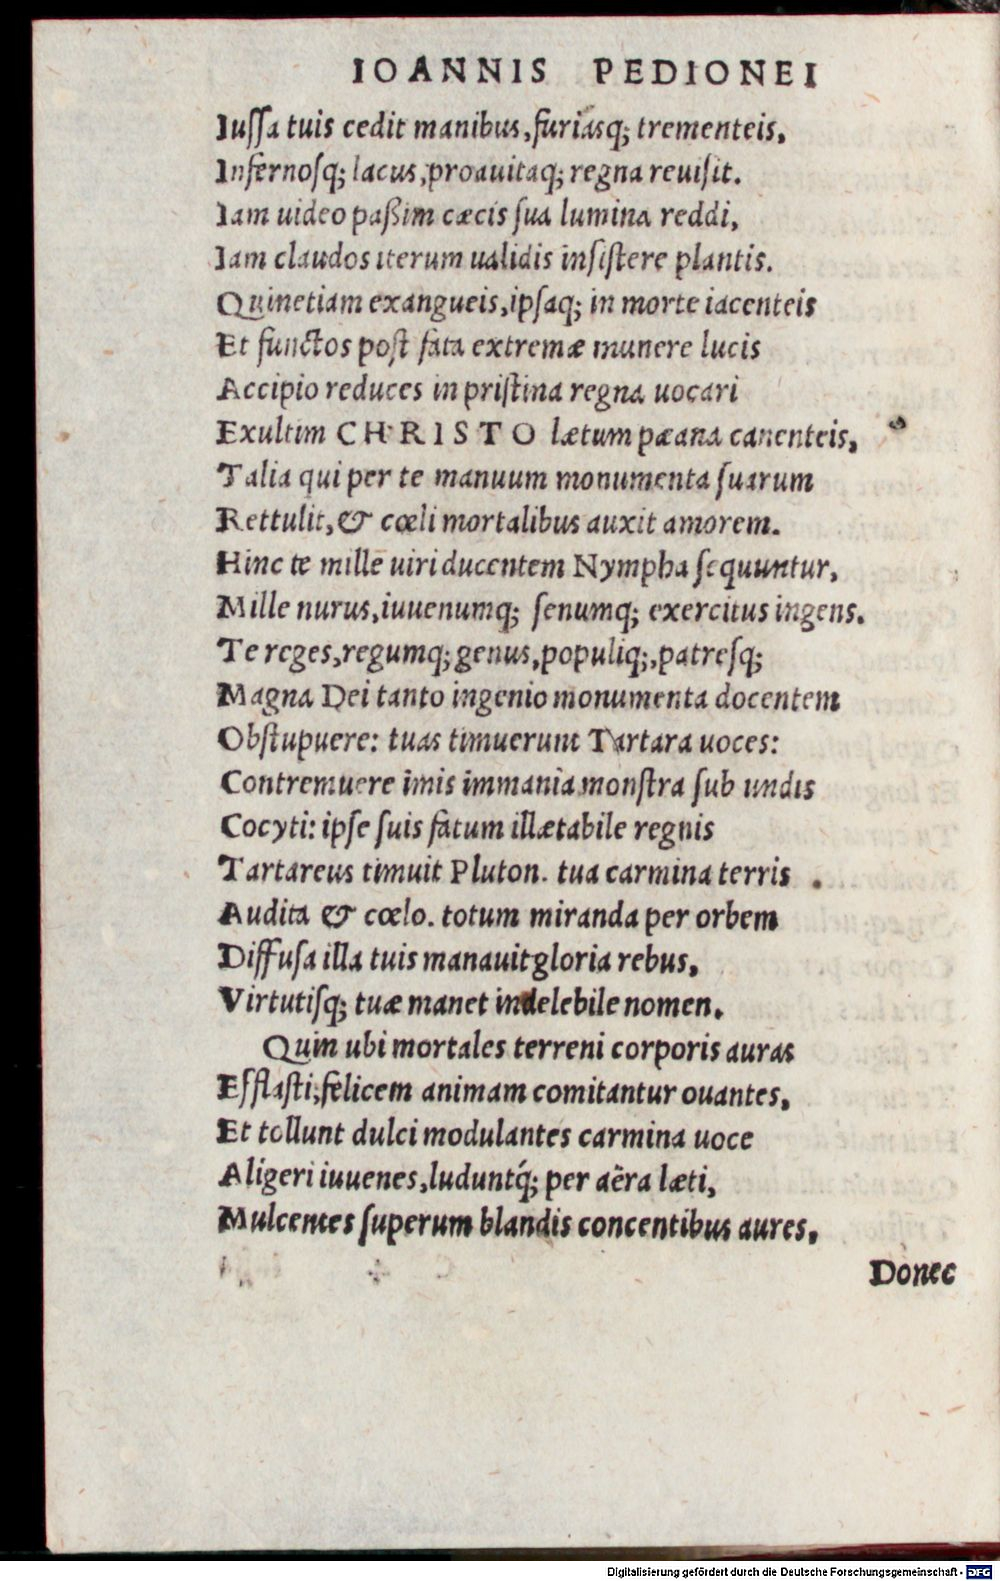 IOANNIS PEDIONEI
Iuſſa tuis cedit manibus, furiasq; trementeis,
Infernoſq; lacus, proauitaq; regna reuiſit.
Iam uideo paßim cæcis ſua lumina reddi,
Iam claudos iterum ualidis inſiſtere plantis.
Quinetiam exangueis, ipſaq; in morte iacenteis
Et functos poſt fata extremæ munere lucis
Accipio reduces in priſtina regna uocari
Exultim CHRISTO lætum pæana canenteis,
Talia qui per te manuum monumenta ſuarum
Rettulit, & cœli mortalibus auxit amorem.
Hinc te mille uiri ducentem Nympha ſequuntur,
Mille nurus, iuuenumq; ſenumq; exercitus ingens.
Te reges, regumq; genus, populiq;, patreſq;
Magna Dei tanto ingenio monumenta docentem
Obſtupuere: tuas timuerunt Tartara uoces:
Contremuere imis immania monſtra ſub undis
Cocyti: ipſe ſuis fatum illætabile regnis
Tartareus timuit Pluton. tua carmina terris
Audita & cœlo. totum miranda per orbem
Diffuſa illa tuis manauit gloria rebus,
Virtutiſq; tuæ manet indelebile nomen.
Quin ubi mortales terreni corporis auras
Efflaſti, felicem animam comitantur ouantes,
Et tollunt dulci modulantes carmina uoce
Aligeri iuuenes, luduntq́; per aëra læti,
Mulcentes ſuperum blandis concentibus aures,
Donec
Digitalisierung gefördert durch die Deutsche Forschungsgemeinschaft - DFG